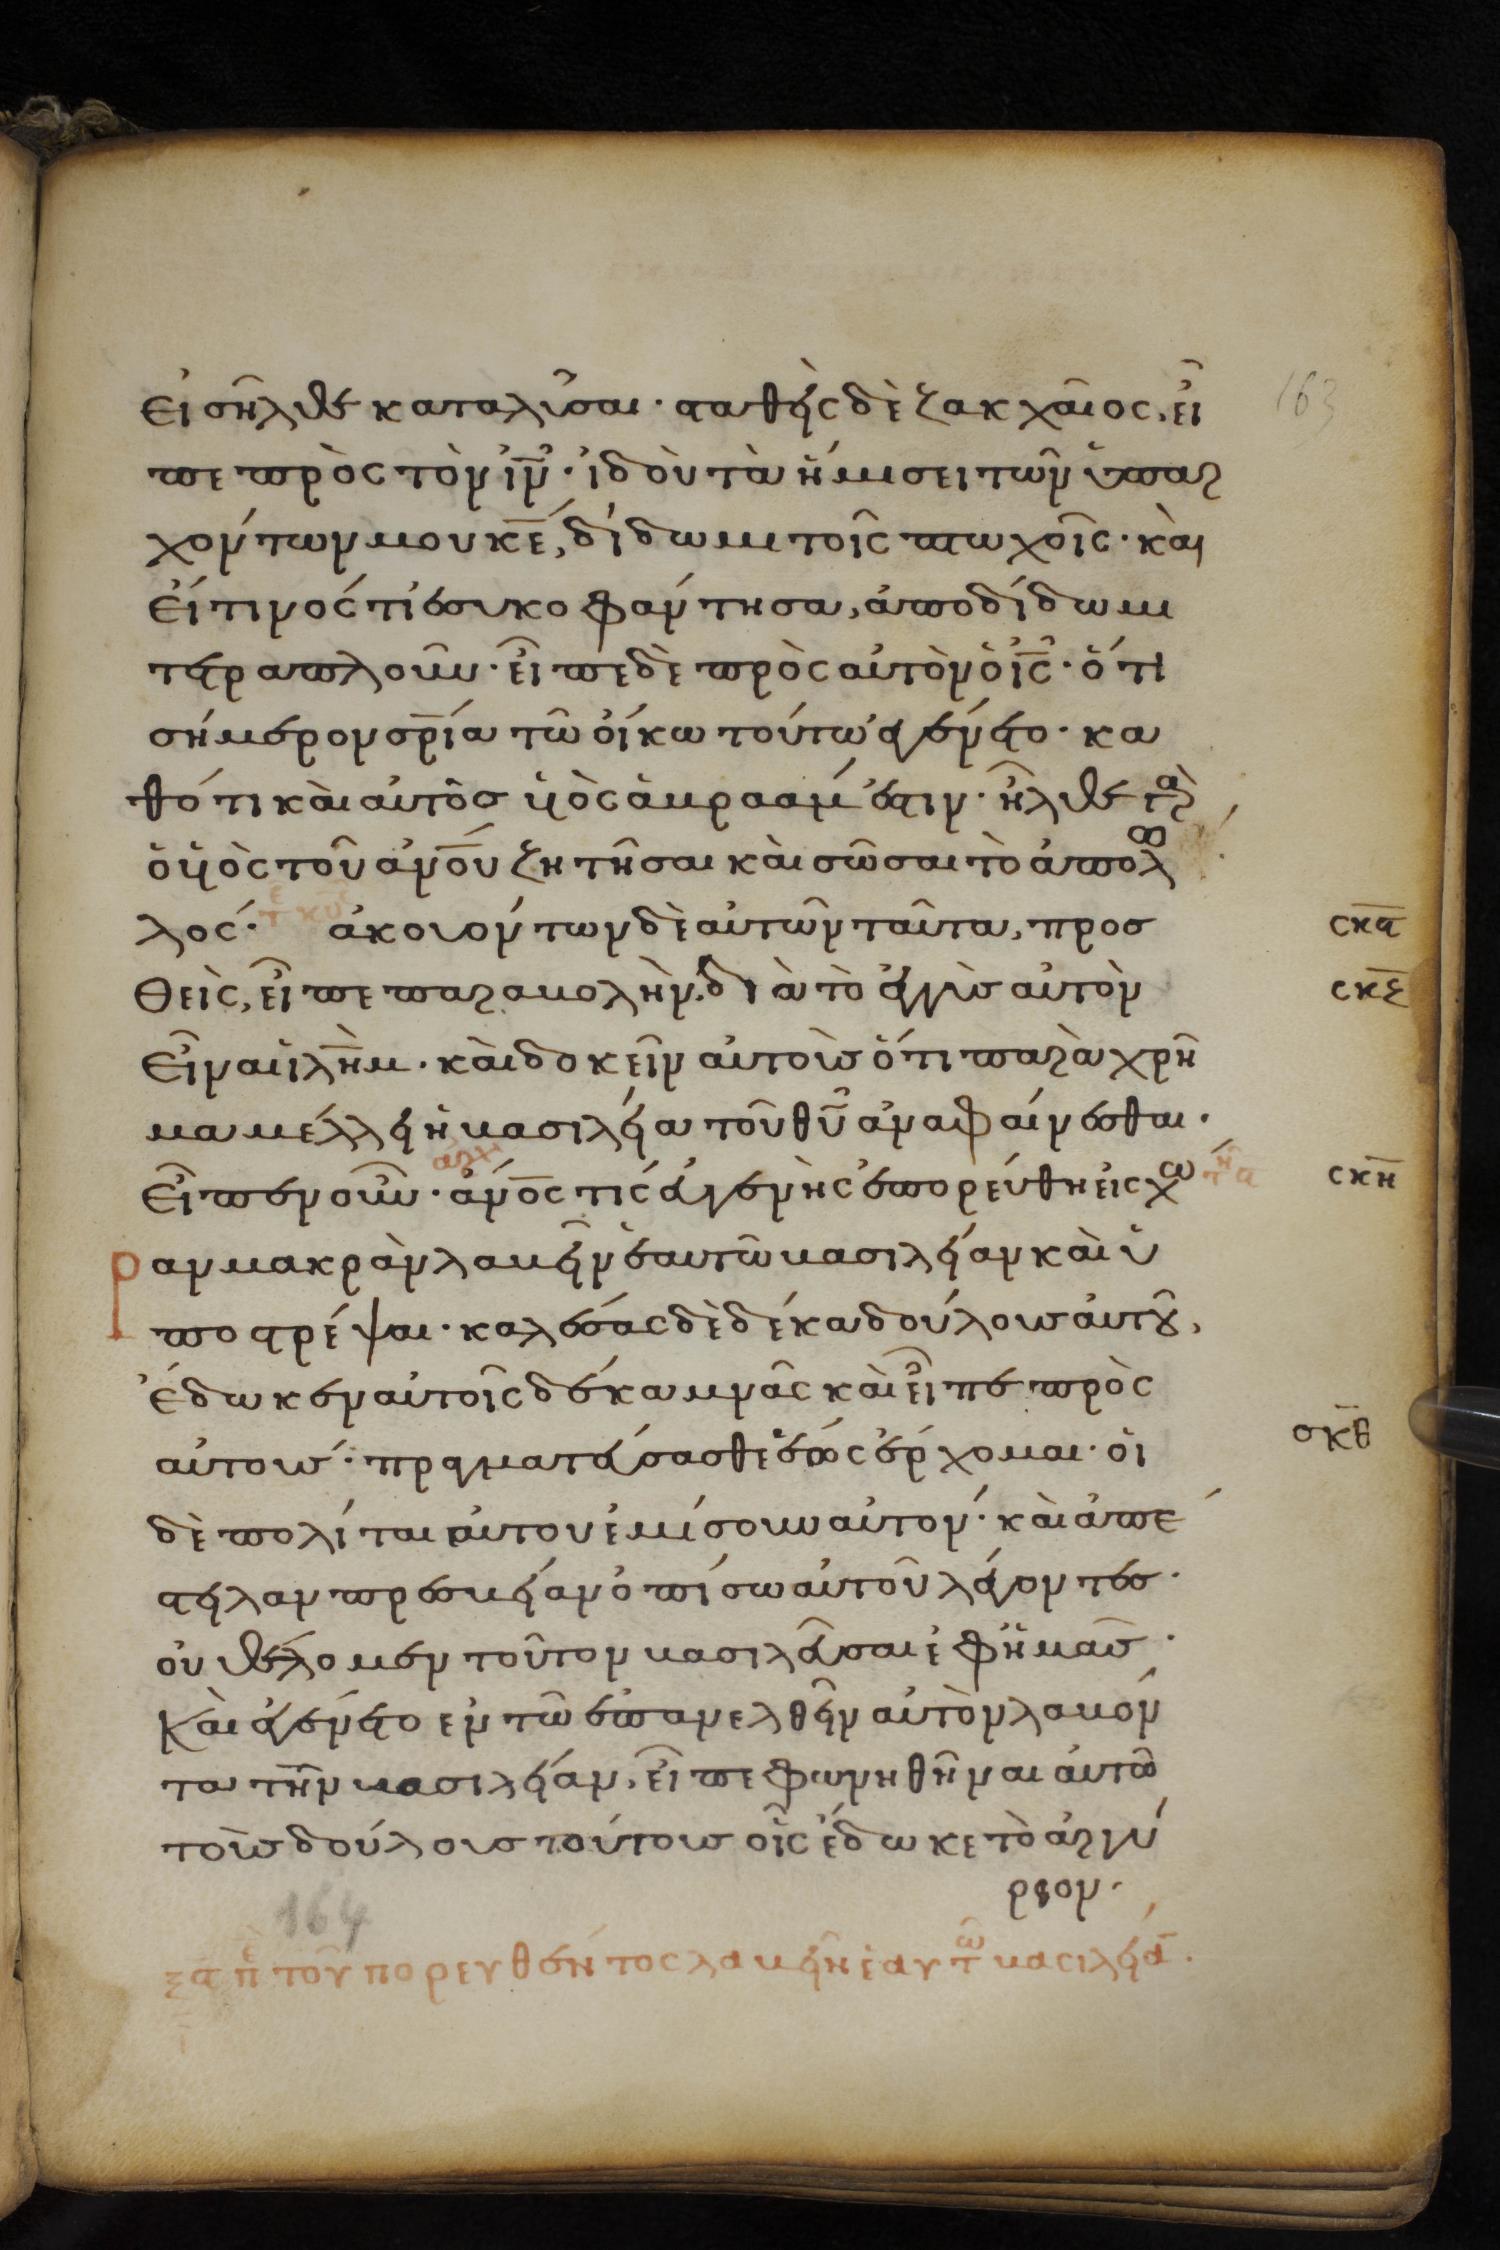 εἰσῆλθε καταλῦσαι· σταθεὶς δὲ ζακχαῖος, εἶ
πε πρὸς τὸν ιν̅· ἰδοὺ τὰ ἡμίσει τῶν ὑπαρ
χόντων μου κε̅, δίδωμι τοῖς πτωχοῖς· καὶ
εἴ τινός τι ἐσυκοφάντησα, ἀποδίδωμι
τετραπλοῦν· εἶπε δὲ πρὸς αὐτὸν ὁ ις̅· ὅτι
σήμερον σρ̅ία τῶ οἴκω τούτω ἐγένετο· κα
θότι καὶ αὐτὸσ υἱὸς ἀβρααμ ἐστιν· ἦλθε γὰρ
ὁ υἱὸς τοῦ αν̅ου ζητῆσαι καὶ σῶσαι τὸ ἀπολω
λός· τε κυ ἀκουόντων δὲ αὐτῶν ταῦτα, προσ
σκδ
θεὶς, εἶπε παραβολὴν, διὰ τὸ ἐγγὺς αὐτὸν
σκε
εἶναι ιλ̅ημ· καὶ δοκεῖν αὐτοὺς ὅτι παραχρῆ
μα μέλλει ἡ βασιλεία τοῦ θυ̅ ἀναφαίνεσθαι·
αρχ
εἶπεν οὖν· αν̅ος τις εὐγενὴς ἐπορεύθη εἰς χώ
σκη
ραν μακρὰν λαβεῖν ἑαυτῶ βασιλείαν καὶ ὑ
ποστρέψαι· καλέσας δὲ δέκα δούλους αὐτοῦ,
ἔδωκεν αὐτοῖς δέκα μνᾶς καὶ εἶπε πρὸς
αὐτούς· πραγματεύσασθε ἕως ἔρχομαι· οἱ
σκθ
δὲ πολίται αὐτου ἐμίσουν αὐτόν· καὶ ἀπέ
στειλαν πρεσβείαν ὀπίσω αὐτοῦ λέγοντες·
οὐ θέλομεν τοῦτον βασιλεῦσαι ἐφ ἡμᾶς·
Καὶ ἐγένετο ἐν τῶ ἐπανελθεῖν αὐτὸν λαβόν
τα τὴν βασιλείαν, εἶπε φωνηθῆναι αὐτῶ
τοὺς δούλους τούτους οἷς ἔδωκε τὸ ἀργύ
ριον·
164
ξα πε τοῦ πορευθέντος λαβεῖν ἑαυτῶ βασιλείαν·
163